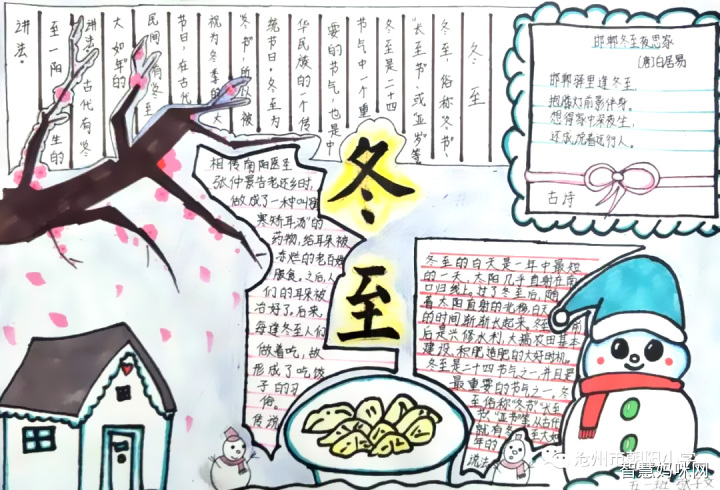 冬至
冬至，俗称“冬节”、
“长至节”、或“亚岁”等
冬至是二十四
节气中一个重
要的节气，也是中
华民族的一个传
统节日，冬至为
冬节，所以被
视为冬季的大
节日，在古代
民间有冬至
大如年的
讲法，古代有冬
至一阳生的
讲法。
邯郸冬至夜思家
(唐)白居易
邯郸驿里逢冬至
抱膝灯前影伴身。
想得家中深夜坐，
还应说着远行人。
古诗
冬至
相传南阳医圣
张仲景告老还乡时，
做成了一种叫“祛
寒矫耳汤”的
药物，给耳朵被
冻烂的老百姓
服食。之后，人
们的耳朵被
治好了，后来，
每逢冬至人们
做着吃，故
形成了吃饺
子的习
俗。
传说
冬至的白天是一年中最短
的一天，太阳几乎直射在南
回归线上。过了冬至后，随
着太阳直射的北移，白天
的时间渐渐长起来。冬至前
后是兴修水利，大搞农田基本
建设、积肥造肥的大好时机。
冬至是二十四节气之一，并且是
最重要的节气之一。冬
至俗称“冬节”“长至
节”“亚节”等，从古代
就有冬至大如
年的
说法
沧州市朝阳小学
五二班
智慧妈咪网